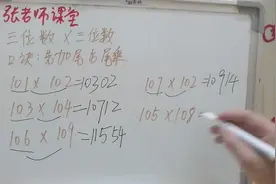 张老师课堂
三位数 × 三位数
口诀:先加尾 后尾乘
101 × 102 = 10302
103 × 104 = 10712
106 × 109 = 11554
107 × 102 = 10914
105 × 108 =